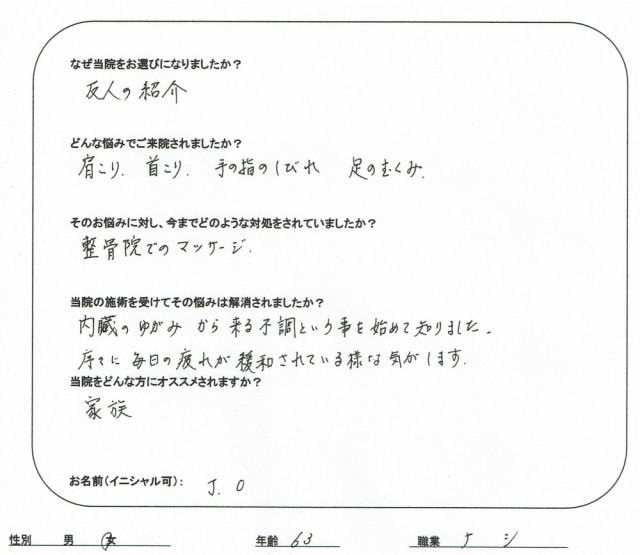 なぜ当院をお選びになりましたか？
友人の紹介
どんな悩みでご来院されましたか？
肩こり. 首こり. 手の指のしびれ 足のむくみ.
そのお悩みに対し、今までどのような対処をされていましたか？
整骨院でのマッサージ.
当院の施術を受けてその悩みは解消されましたか？
内臓のゆがみ から来る不調という事を始めて知りました。
序々に 毎日の疲れが緩和されている様な気がします.
当院をどんな方にオススメされますか？
家族
お名前（イニシャル可）： J. O
性別 男 女 年齢 63 職業 ナシ